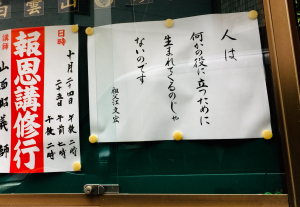 人は
何かの役に立つために
生まれてくるのじゃ
ないのです
日時
十月二十四日 午後二時
二十五日 午前七時
午後二時
報恩講修行
講師